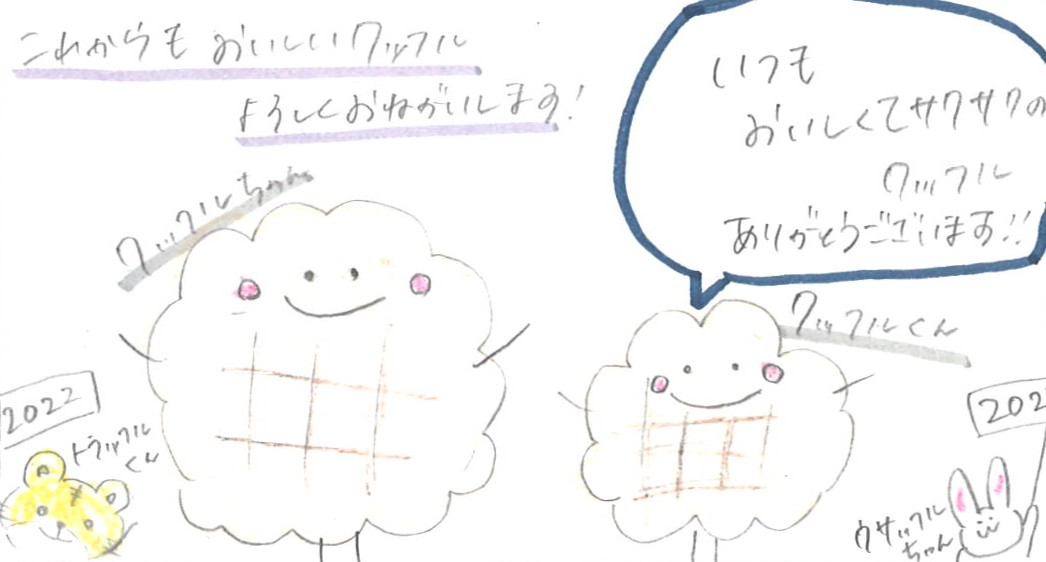 これからも おいしいワッフル
よろしくおねがいします!
いつも
おいしくてサクサクの
ワッフル
ありがとうございます!!
ワッフルちゃん
ワッフルくん
2022
トラッフル
くん
202
ウサッフル
ちゃん